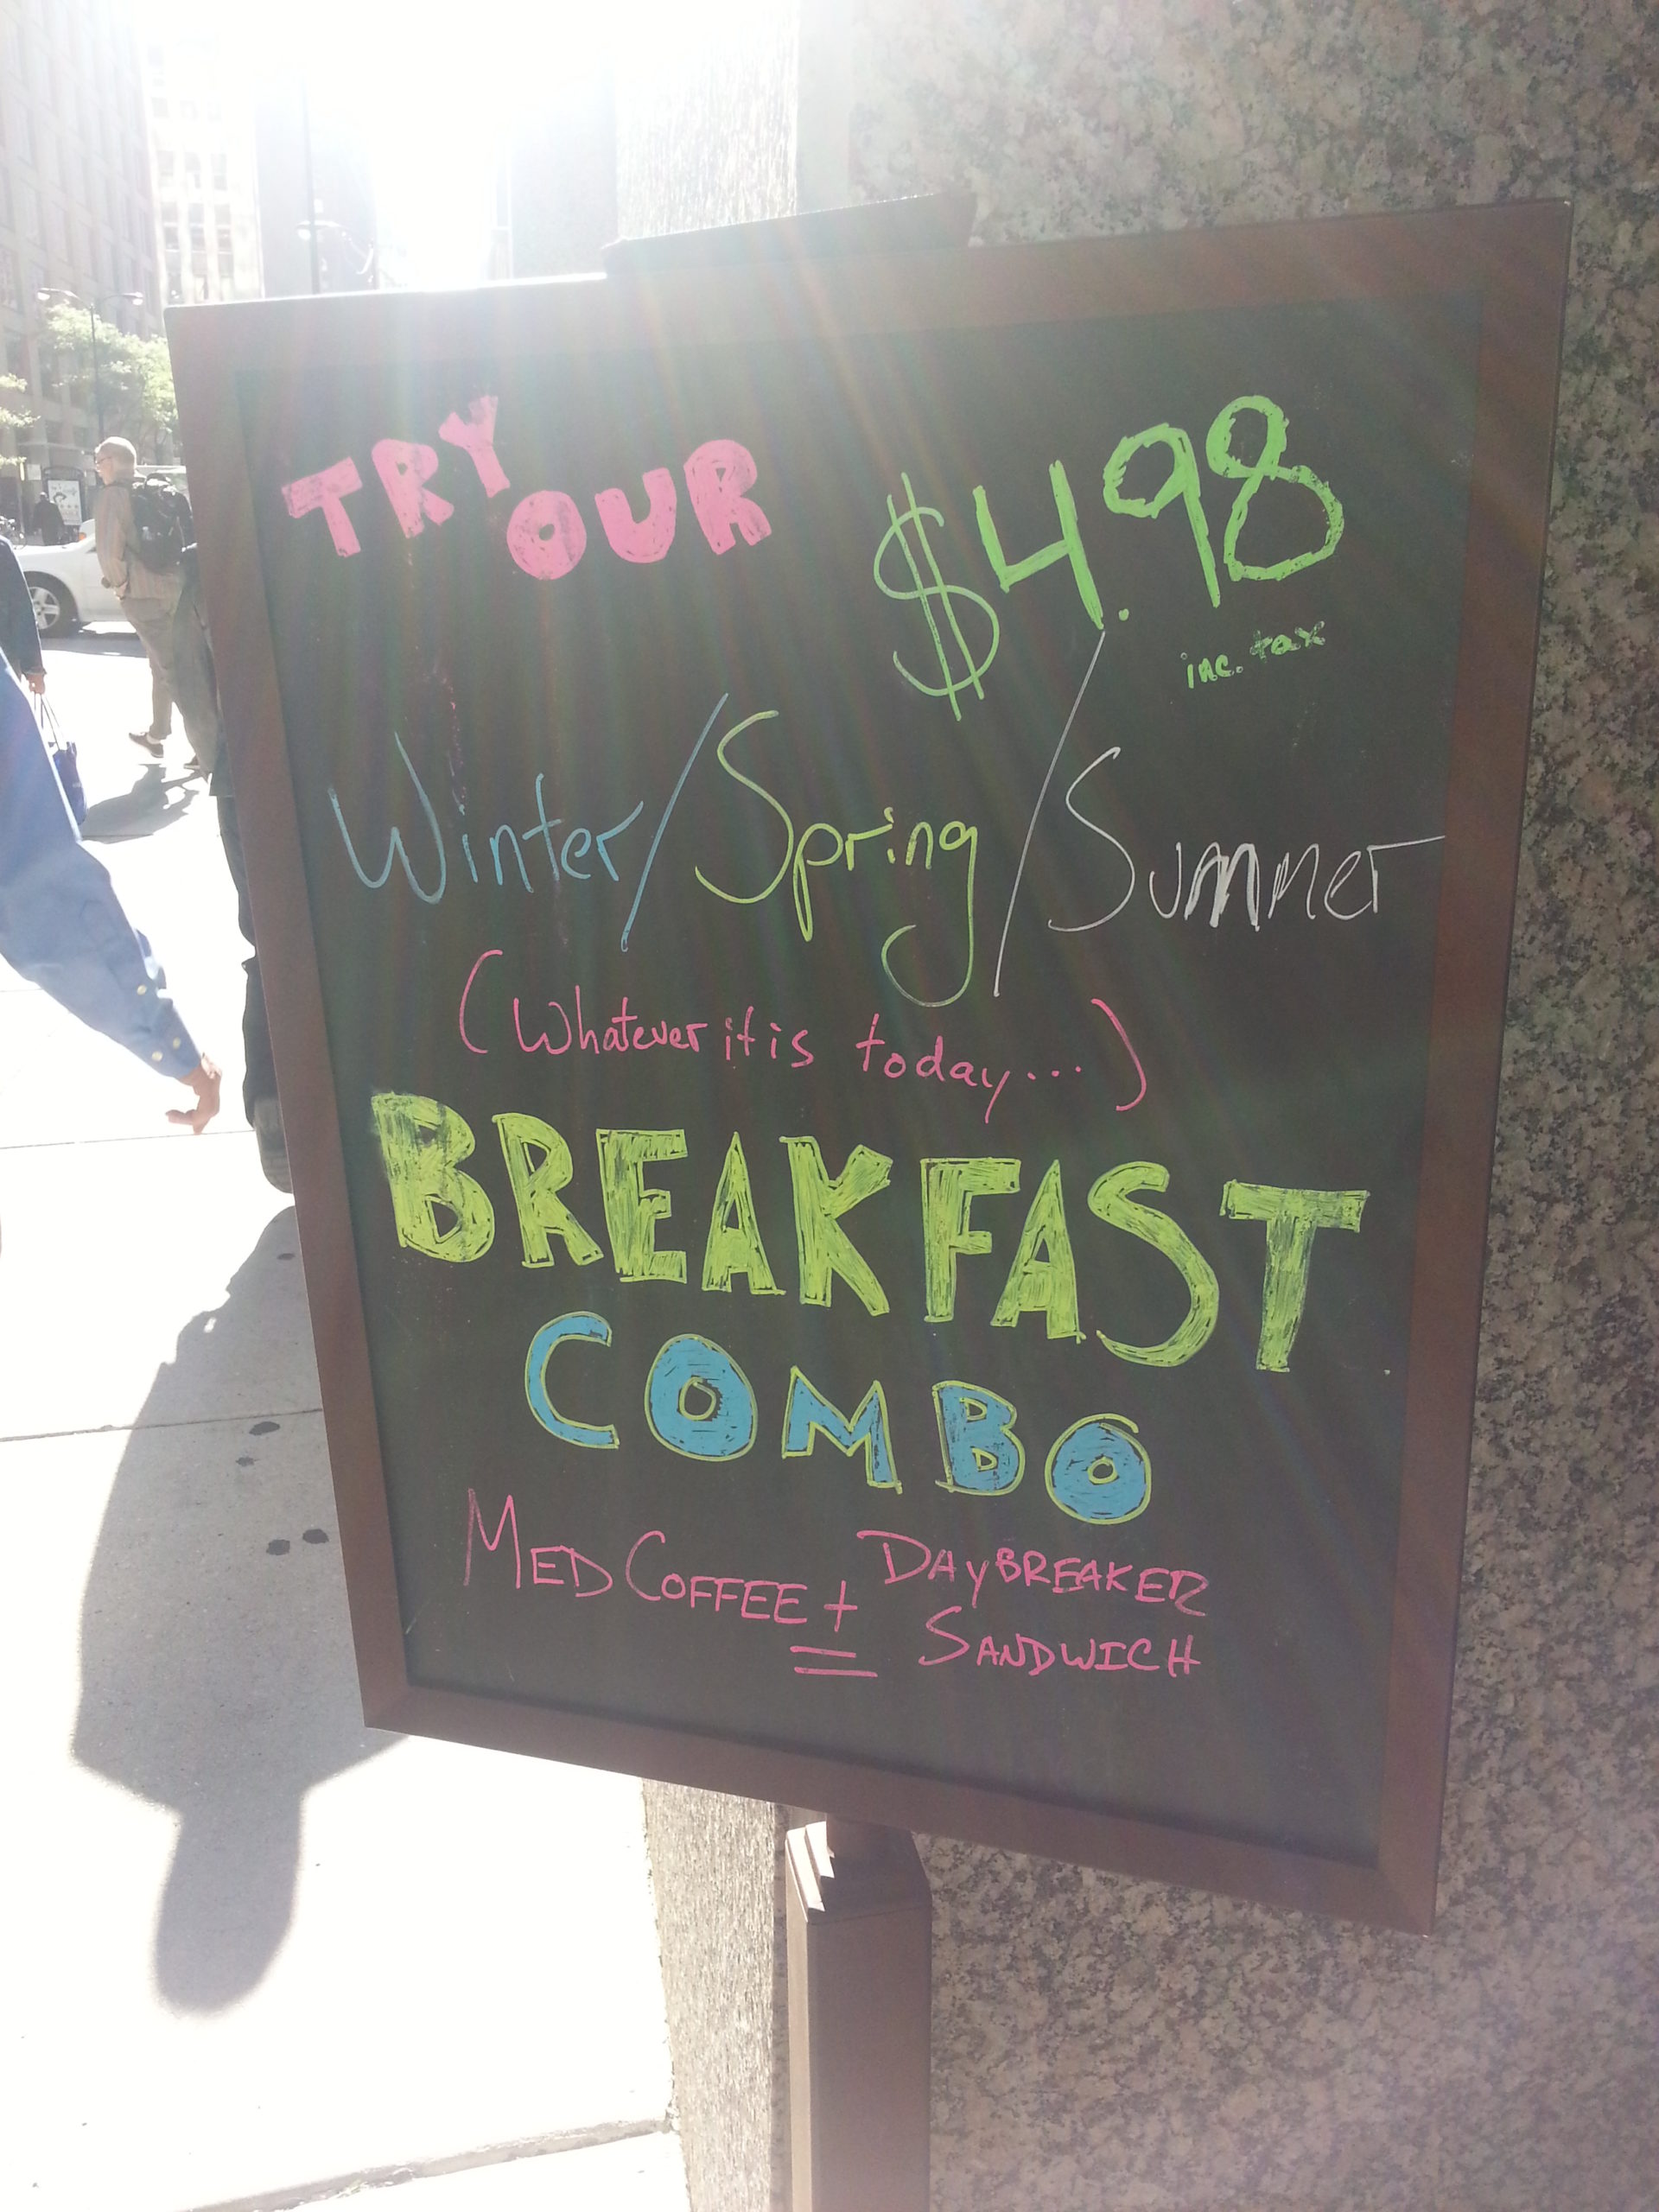 TRY OUR
$4.98
inc. tax
Winter/Spring/Summer
(Whatever it is today...)
BREAKFAST
COMBO
MED COFFEE + DAYBREAKER
SANDWICH